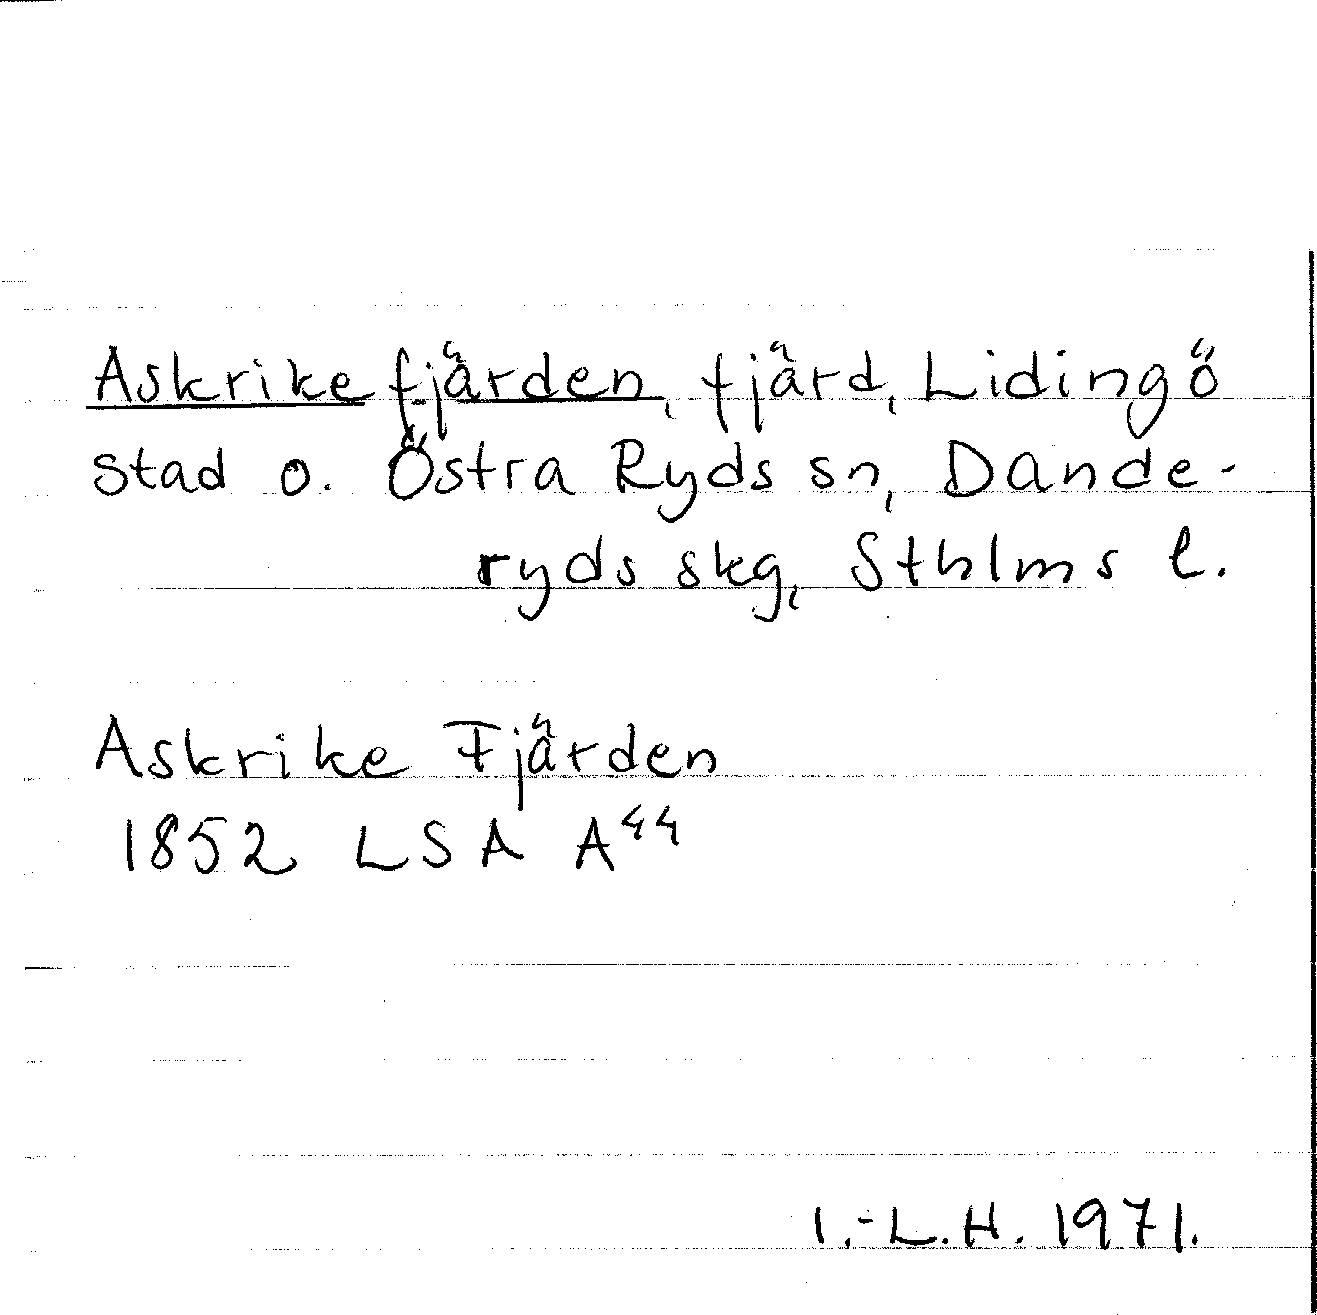 Askrikefjärden, fjärd, Lidingö
stad o. Östra Ryds sn, Dande-
ryds skg, Sthlms l.
Askrike Fjärden
1852 LSA A⁴⁴
I.-L.H. 1971.